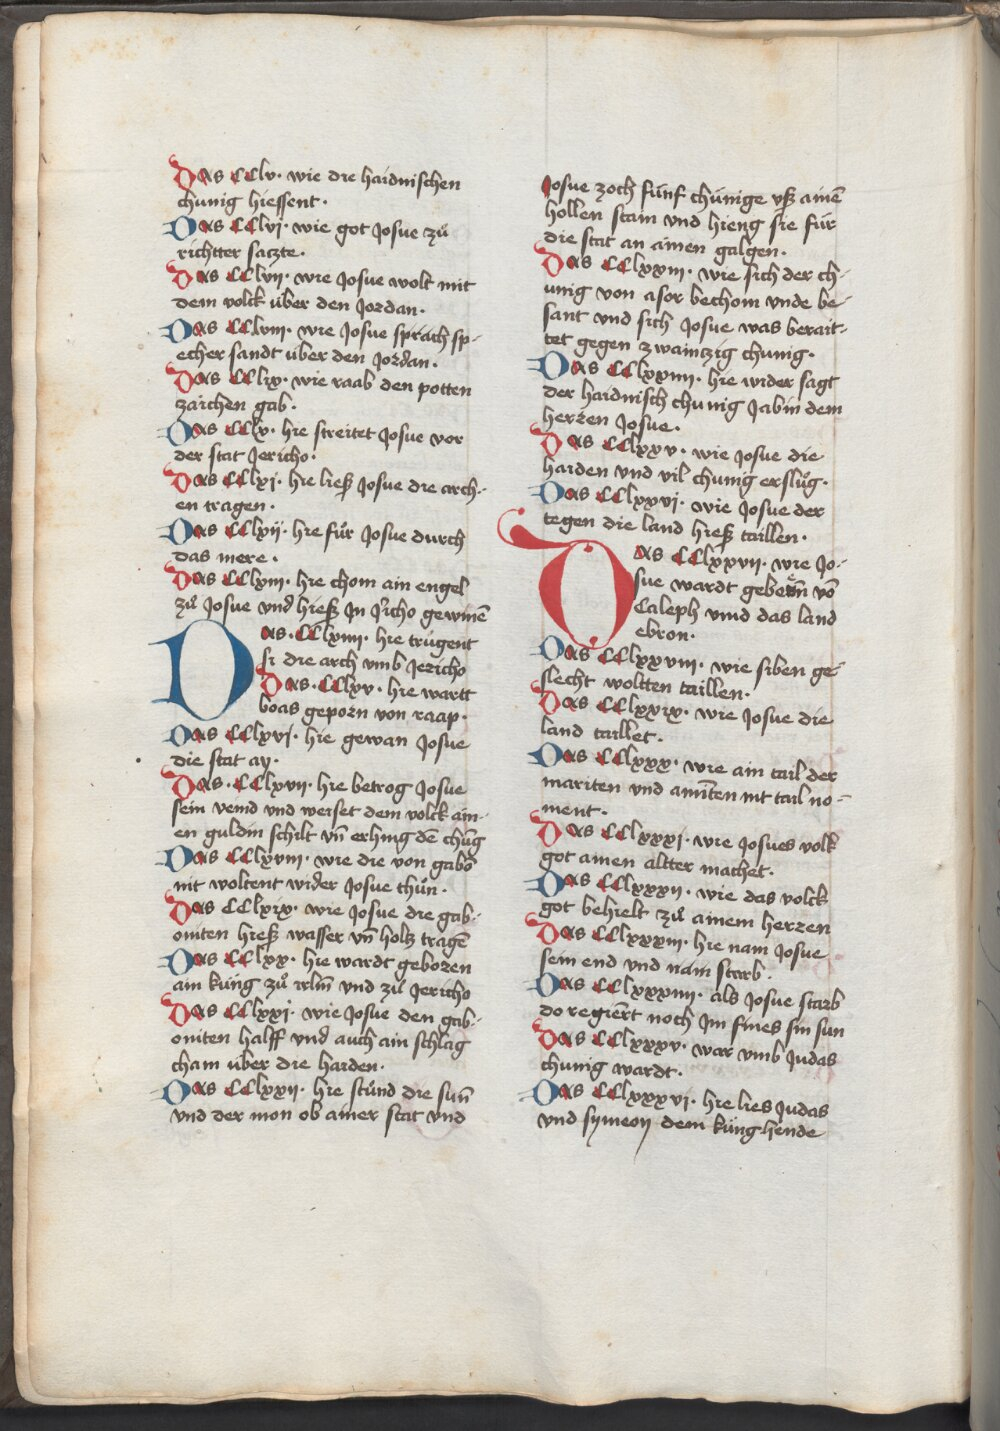 Das CClv· wie die haidnischen
chunig hiessent·
Das CClvi· wie got Josue zů
richtter saczte·
Das CClvii· wie Josue wolt mit
dem volck über den Jordan·
Das CClviii· wie Josue sprach sp-
echer sandt über den Jordan·
Das CClix· wie raab den potten
zaichen gab·
Das CClx· hie streitet Josue vor
der stat Jericho·
Das CClxi· hie ließ Josue die arch-
en tragen·
Das CClxij· hie fůr Josue durch
das mere·
Das CClxiii· hie chom ain engel
zů Josue vnd hieß In Jricho gewinē
Das·CClxiiii· hie trůgent
si die arch vmb Jericho
Das·CClxv· hie wartt
boas geporn von raap·
Das CClxvi· hie gewan Josue
die stat ay·
Das·CClxvii· hie betrog Josue
sein veind vnd weiset dem volck ain-
en guldin schilt vn̄ erhing dē chūg
Das CClxviii· wie die von gabo
nit woltent wider Josue thůn·
Das CClxix· wie Josue die gab-
oniten hieß wasser vn̄ holtz tragē
Das CClxx· hie wardt geboren
ain küng zů irlm̄ vnd zů Jericho
Das CClxxi· wie Josue den gab-
oniten halff vnd auch ain schlag
cham über die haiden·
Das CClxxij· hie stůnd die sun̄
vnd der mon ob ainer stat vnd
Josue zoch fünf chünige vß ainē
hollen stain vnd hieng sie für
die stat an ainen galgen·
Das CClxxiii· wie sich der ch-
unig von asor bechom vnde be-
sant vnd sich Josue was berait-
tet gegen zwainzig chunig·
Das CClxxiiii· hie wider sagt
der haidnisch chunig Jabin dem
herren Josue·
Das CClxxv· wie Josue die
haiden vnd vil chunig erslůg·
Das CClxxvi· wie Josue der
tegen die land hieß taillen·
Das CClxxvii· wie Jo-
sue wardt gebetn̄ vō
Caleph vmd das land
ebron·
Das CClxxviii· wie siben ge-
slecht woltten taillen·
Das CClxxix· wie Josue die
land taillet·
Das CClxxx· wie ain tail der
mariten vnd amīten nit tail no-
ment·
Das CClxxxi· wie Josues volk
got ainen altter machet·
Das CClxxxii· wie das volck
got behielt zů ainem herren
Das CClxxxiii· hie nam Josue
sein end vnd nām starb·
Das CClxxxiiii· als Josue starb
do regiert noch Im fines sin sun
Das CClxxxv· war vmb Judas
chunig wardt·
Das CClxxxvi· hie lies Judas
vnd symeon dem küng hende